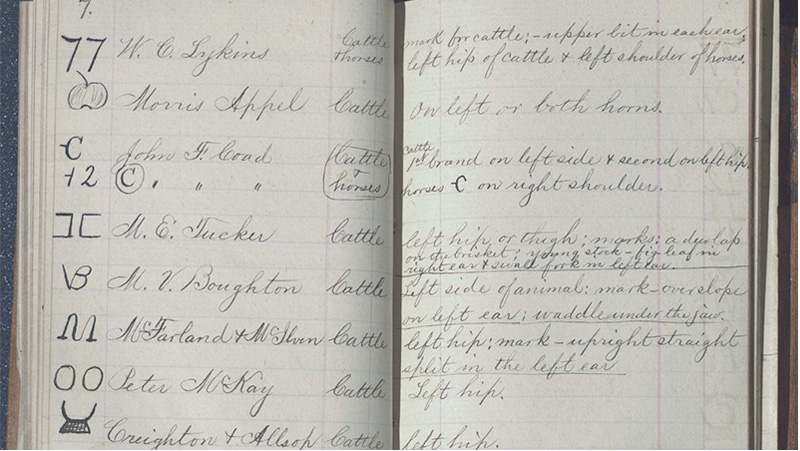 7.
77 W. C. Lykins Cattle & horses mark for cattle; - upper bit in each ear,
left hip of cattle & left shoulder of horses.
Morris Appel Cattle On left or both horns.
C John F. Coad Cattle & horses cattle 1st brand on left side & second on left hip.
+2 C " " " horses C on right shoulder.
M. E. Tucker Cattle left hip or thigh; marks: a dewlap
on the brisket; young stock - fig leaf in
right ear & small fork in left ear.
VB M. V. Boughton Cattle Left side of animal: mark - overslope
on left ear; waddle under the jaw.
McFarland & McIlven Cattle left hip; mark - upright straight
split in the left ear
OO Peter McKay Cattle Left hip.
Creighton & Allsop Cattle left hip.